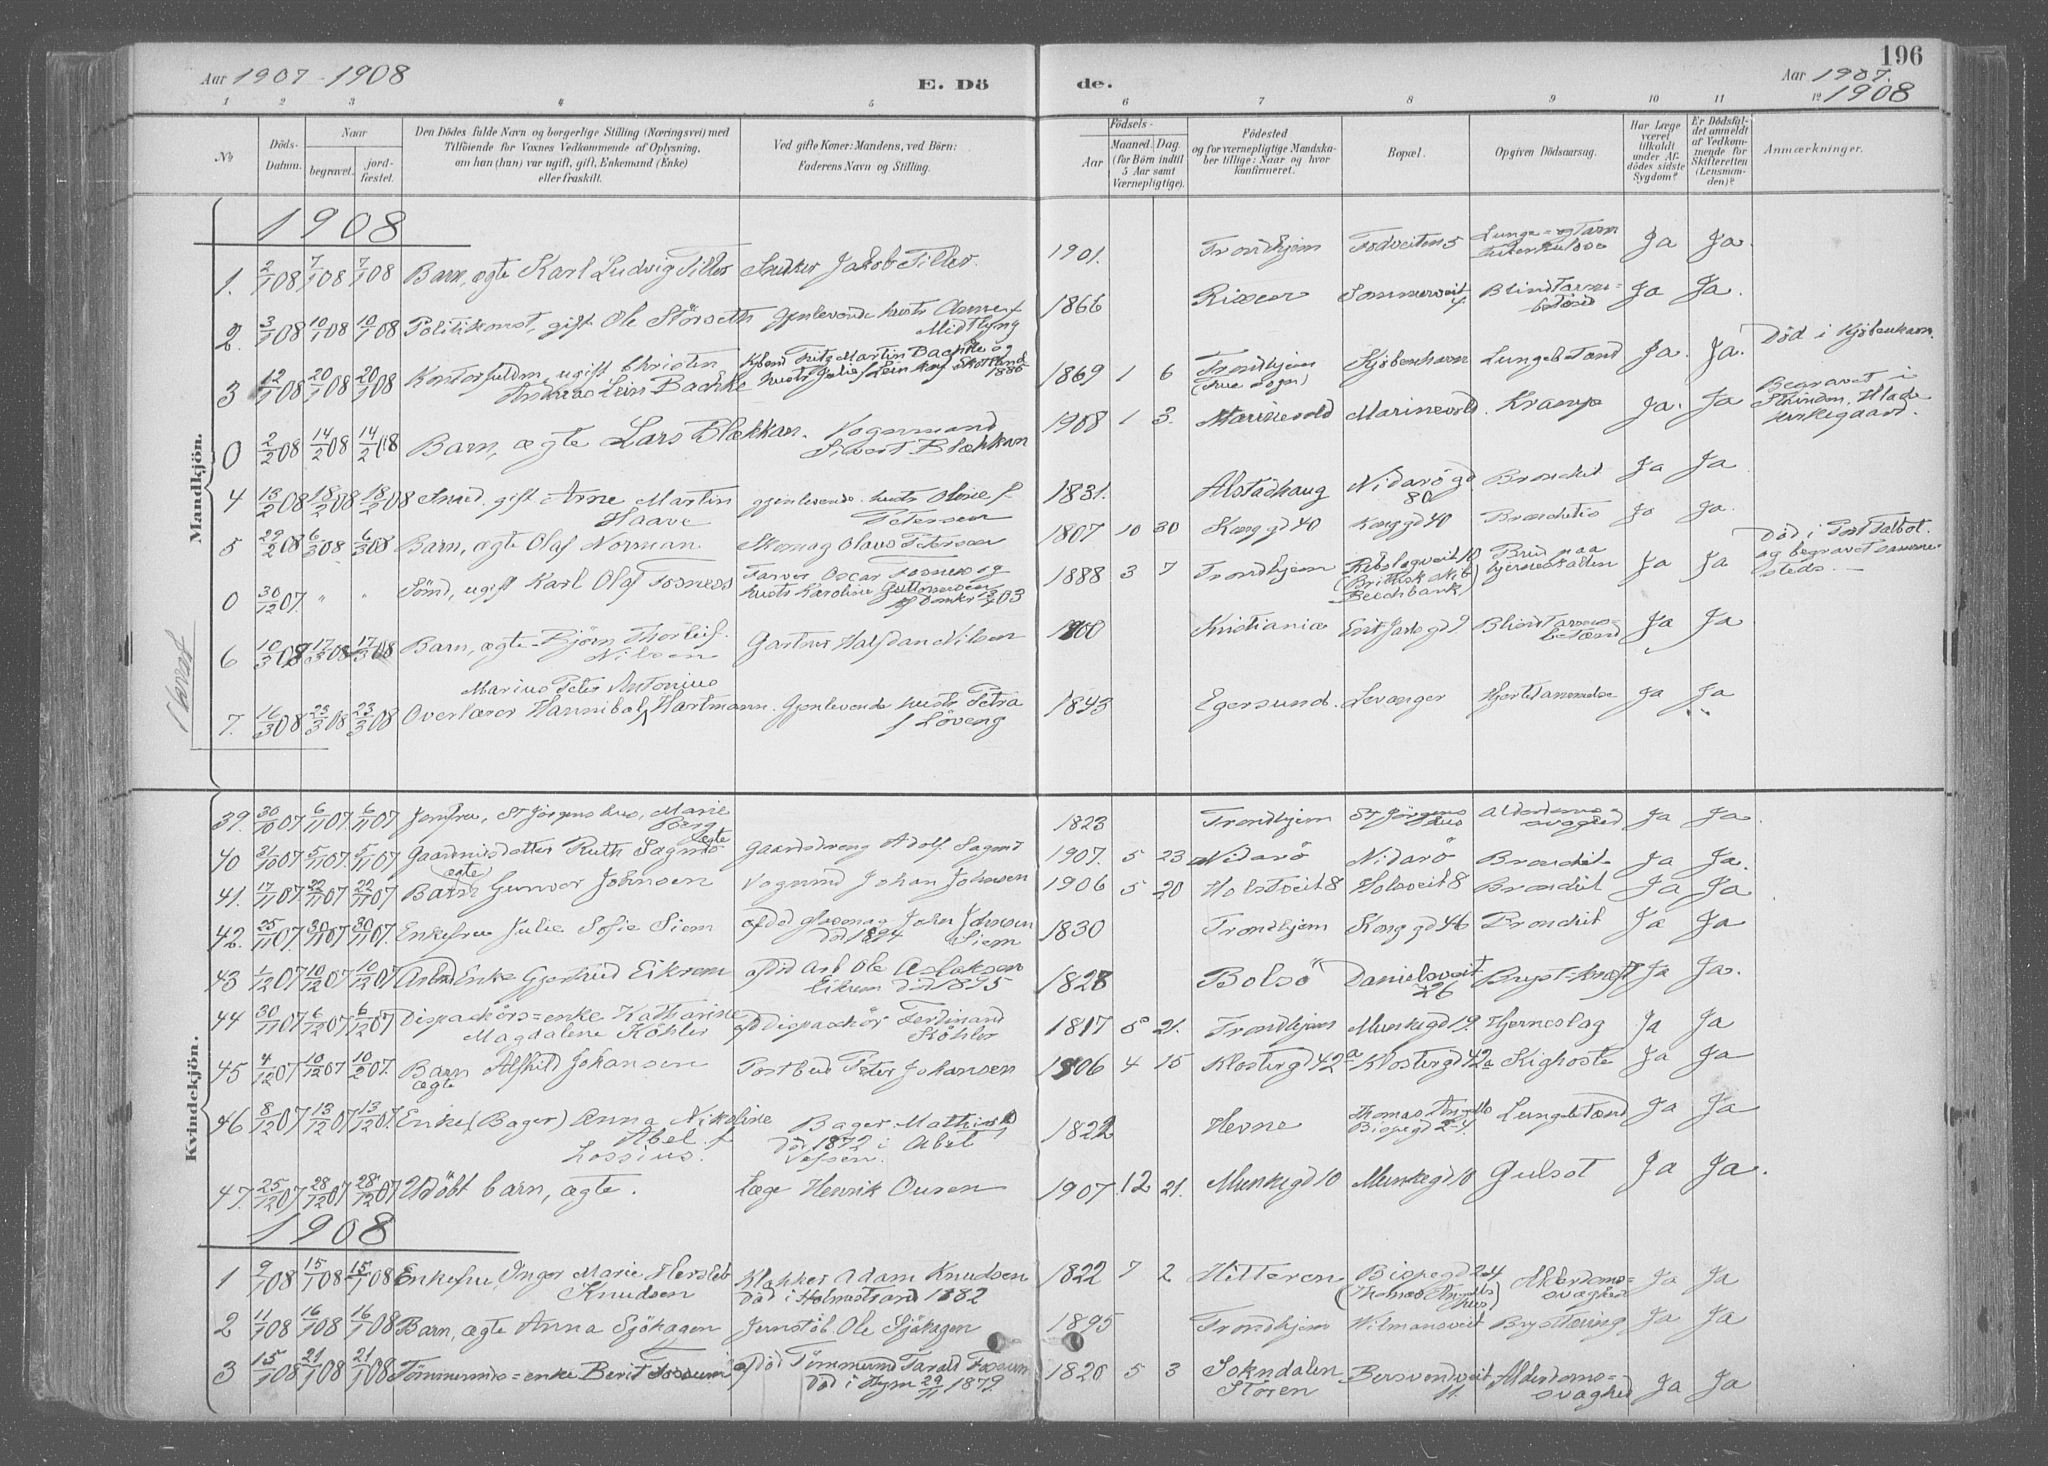 196
Aar 1907-1908
E. Dö
de.
Aar 1907.
1908
1 2 3 4 5 6 7 8 9 10 11 12
No
Döds-
Datum.
Naar
begravet.
jord-
fæstet.
Den Dödes fulde Navn og borgerlige Stilling (Næringsvei) med
Tilföiende for Voxnes Vedkommende af Oplysning,
om han (hun) var ugift, gift, Enkemand (Enke)
eller fraskilt.
Ved gifte Koner: Mandens, ved Börn:
Faderens Navn og Stilling.
Födsels-
Aar
Maaned. Dag.
(for Börn indtil
5 Aar samt
Værnepligtige).
Födested
og for værnepligtige Mandska-
ber tillige: Naar og hvor
konfirmeret.
Bopæl.
Opgiven Dödsaarsag.
Har Læge
været
tilkaldt
under Af-
dödes sidste
Sygdom?
Er Dödsfal-
det anmeldt
af Vedkom-
mende for
Skifteretten
(Lensman-
den)?
Anmærkninger.
Mandkjön.
1908
1. 2/1 08 7/1 08 7/1 08 Barn, ægte Karl Ludvig Tiller Snedker Jakob Tiller 1901. Trondhjem Fodveiten 5 Lunge- og Tarm
tuberkulose Ja Ja.
2. 3/1 08 10/1 08 10/1 08 Politikonst, gift Ole Störseth Gjenlevende hustr Anne f
Midtlyng 1866 Risør Sommerveit
4 Blindtarms-
betænd Ja Ja.
3 12/1 08 20/1 08 20/1 08 Kontorfuldm, ugift Christen
Andreas Lein Bachke Kjbmd Fritz Martin Bachke og
hustr Julie f Lein Skotland
1886 1869 1 6 Trondhjem
(Frue Sogn) Kjöbenhavn Lungebetænd Ja. Ja. Död i Kjöbenhavn.
0 2/2 08 14/2 08 14/2 08 Barn, ægte Lars Blækkan. Vognmand
Sivert Blækkan 1908 1 3. Marinevold Marinevold. Krampe Ja. Ja Begravet i
Strinden, Hlade
kirkegaard.
4 13/2 08 18/2 08 18/2 08 Smed, gift Arne Martin
Haave gjenlevende hustr Oline f
Petersen 1831. Alstadhaug Nidarö gd
80 Brondit Ja Ja
5 29/2 08 6/3 08 6/3 08 Barn, ægte Olaf Norman Skomag Olaus Petersen 1807 10 30 Kong gd 40 Kong gd 40 Bronchitis Ja Ja.
0 30/12 07. " " Sömd, ugift Karl Olaf Fosness Farver Oscar Fosness og
hustr Karoline Guttormsen
03 1888 3 7 Trondhjem Rebslagveit 10
(Brittisk skib
Beechbank) Brud paa
hjerneskallen Ja Ja Död i Port Talbot
og begravet samme-
steds.
6 10/3 08 17/3 08 17/3 08 Barn, ægte Björn Thorleif
Nilsen Gartner Halfdan Nilsen 1900 Kristiania Erik Jarls gd 9 Blindtarms-
betænd Ja Ja
7. 16/3 08 23/3 08 23/3 08 Marius Peter Antonius
Overlærer Hannibal Hartmann. Gjenlevende hustr Petra
f Löveng 1843 Egersund. Levanger Hjertelammelse Ja Ja
Kvindekjön.
39. 30/10 07 6/11 07. 6/11 07 Jomfru, St Jörgens hus, Marie
Berg 1823 Trondhjem St Jörgens
hus Alderdoms-
svaghed Ja Ja.
40 31/10 07 5/11 07. 5/11 07 Gaardmdsdatter Ruth Sagmo
ægte Gaardsdreng Adolf Sagmo 1907. 5 23 Nidarö Nidarö Brondit Ja Ja.
41. 17/11 07. 22/11 07 22/11 07 ægte
Barn Gunvor Johnsen Vognmd Johan Johnsen 1906 5 20 Holstveit 8 Holsveit 8 Brondit Ja Ja
42. 25/11 07. 30/11 07 30/11 07. Enkefru Julie Sofie Siem afdöd John Johnsen
död 1894 Siem 1830 Trondhjem Kong gd 46 Brondit Ja Ja
43 1/12 07 10/12 07 10/12 07 Arbmd Enke Gjertrud Eikrem afdöd Arb Ole Aslaksen
Eikrem död 1875 1828 Bolsö Danielsveit
26 Bryst-kræft Ja Ja.
44 30/11 07 6/12 07 6/12 07 Dispachörs-enke Katharine
Magdalene Köhler afd Dispachör Ferdinand
Köhler 1817 5 21. Trondhjem Munkegd 19. Hjerneslag Ja Ja
45 4/12 07 10/12 07 10/2 07. Barn Alfhild Johansen
ægte Postbud Peter Johansen 1906 4 15 Klostergd 42a Klostergd 42a Kighoste Ja Ja
46 8/12 07 13/12 07 13/12 07. Enke (Bager) Anna Nikoline
Abel f
Lossius. Bager Mathias
Död 1872 i Abel
Vefsen. 1822 Hevne Thomas Angells
Bispegd 2-4. Lungebetænd Ja Ja
47. 25/12 07 28/12 07 28/12 07 Udöbt barn, ægte. Læge Henrik Ousen 1907 12 21. Munkegd 10 Munkegd 10 Gulsot Ja Ja.
1908
1 9/1 08 15/1 08 15/1 08 Enkefru Inger Marie Hersleb
Knudsen Klokker Adam Knudsen
död i Holmestrand 1882 1822 7 2 Hitteren Bispegd 2-4
(Thomas Angells
hus) Alderdoms-
svaghed Ja Ja
2 11/1 08 16/1 08 16/1 08 Barn, ægte Anna Sjöhagen Jernstöb. Ole Sjöhagen 1895 Trondhjem Wilmansveit Brysttæring Ja Ja
3 15/1 08 21/1 08 21/1 08 Tömmermds-enke Berit Fossum afdöd Tömmermd Tarald Fossum
Död i Hjem 29/11 1879. 1826 5 3 Soknedalen
Stören Bersvendveit
11. Alderdoms-
svaghed Ja Ja